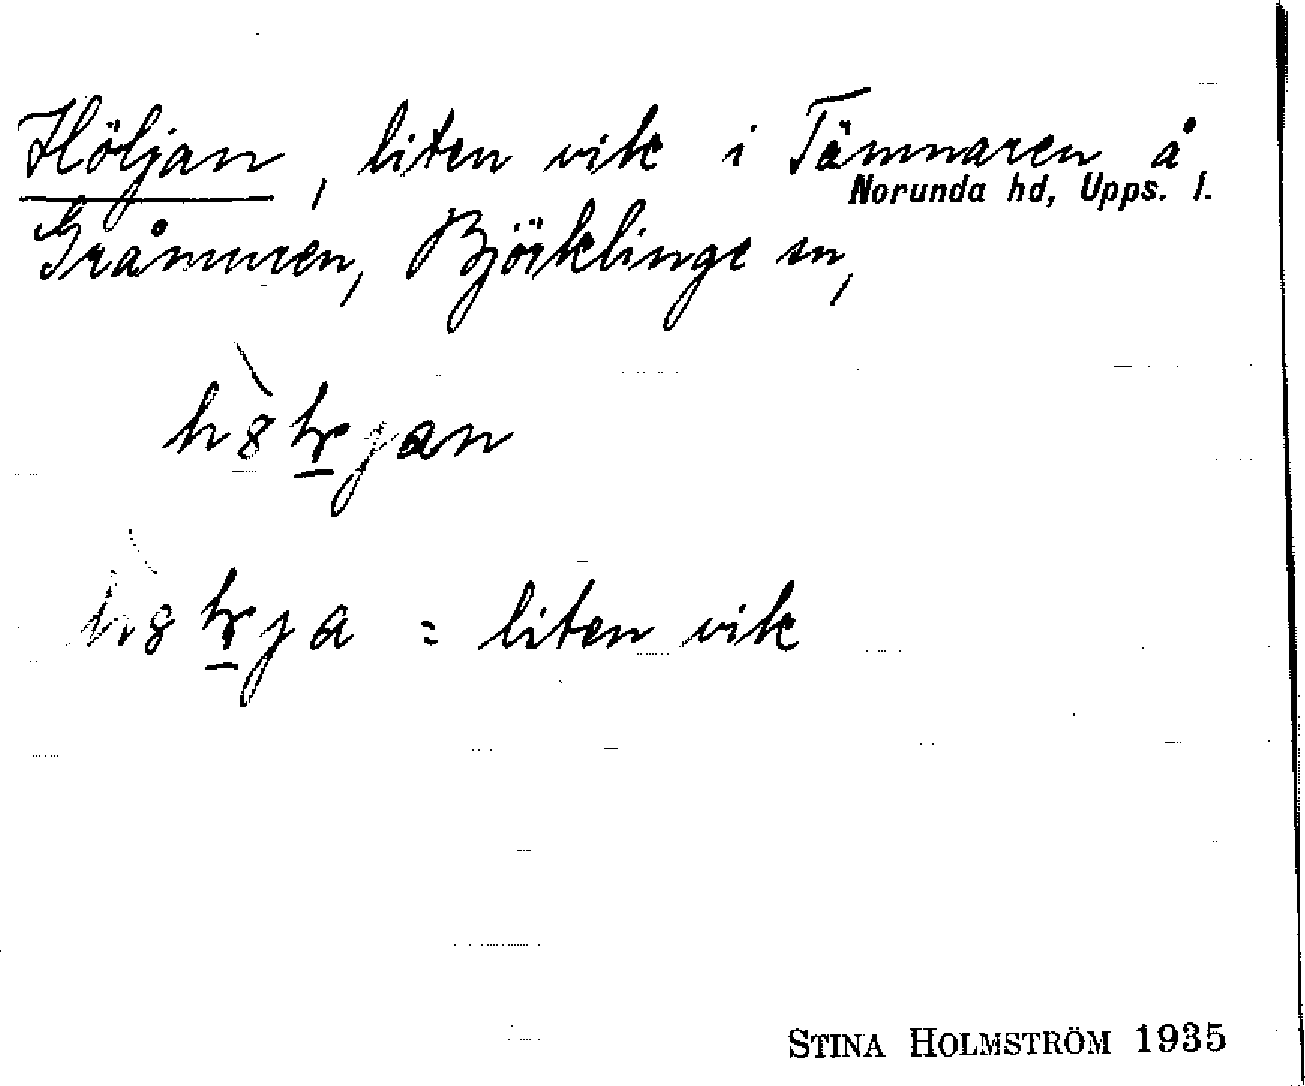 Höljan, liten vik i Tämnaren å
Norunda hd, Upps. l.
Gråmuren, Björklinge sn,
jan
ja = liten vik
STINA HOLMSTRÖM 1935